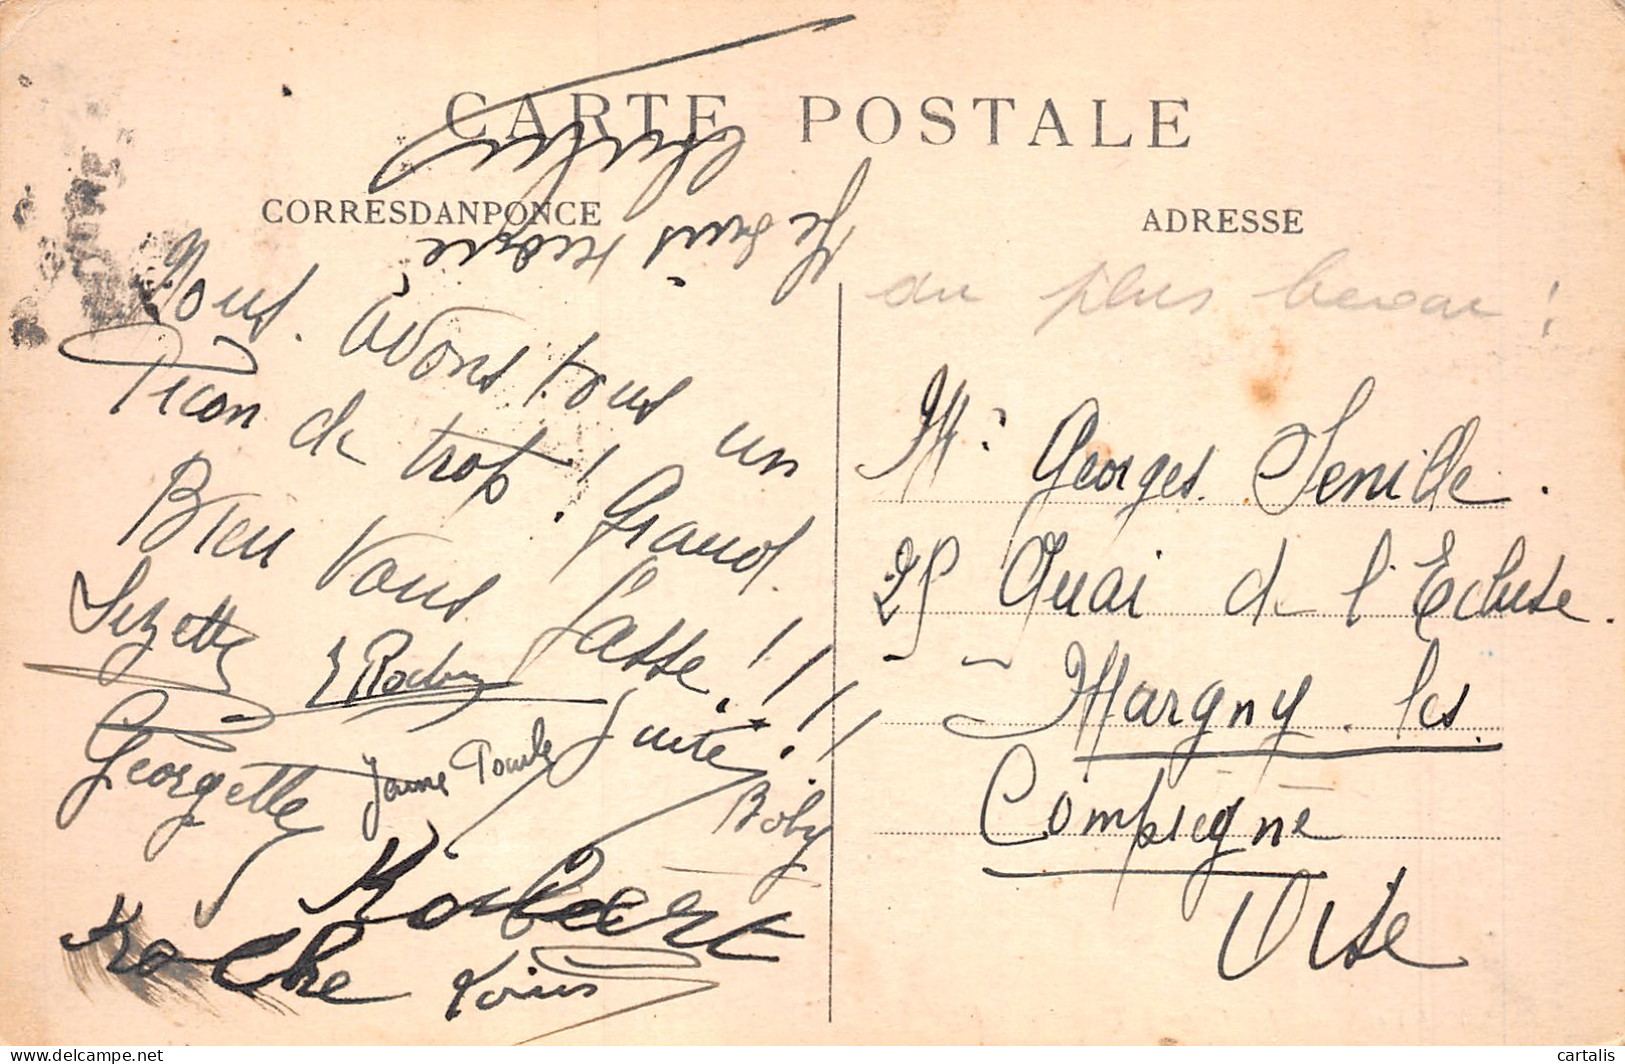 CARTE POSTALE
CORRESDANPONCE
ADRESSE
Je suis
Nous avons tous un
Picon de trop ! Grand
Bien vous fasse !!!
Suzette
Georgette
Suite
Boby
Robert
Roche
Louis
au plus beau !
Mr Georges Senille.
25 Quai de l'Ecluse.
Margny-les
Compiegne
Oise
cartalis
delcampe.net